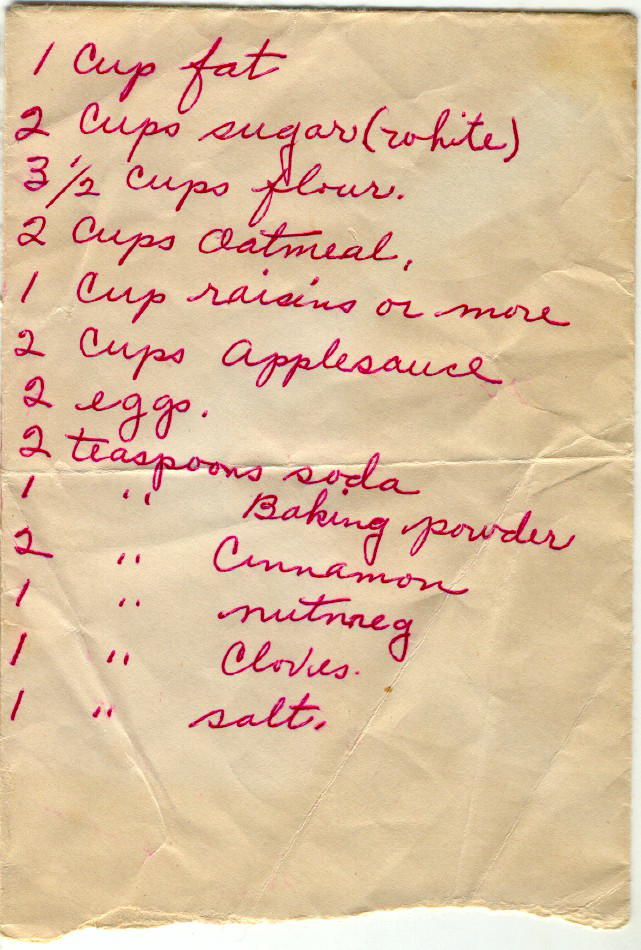 1 Cup fat
2 Cups sugar (white)
3 1/2 Cups flour.
2 Cups Oatmeal.
1 Cup raisins or more
2 Cups Applesauce
2 eggs.
2 teaspoons soda
1 " Baking powder
2 " Cinnamon
1 " nutmeg
1 " Cloves.
1 " salt.